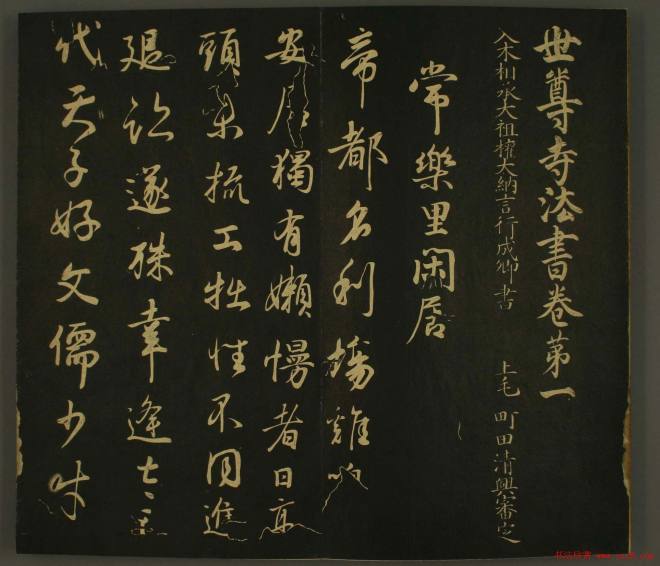 世尊寺法書卷第一
入木相承大祖權大納言行成卿書 上毛 町田清興審定
常樂里閑居
帝都名利場雞鳴
安居獨有嬾慢者日高
頭未梳工拙性不同進
退迹遂殊幸逢太平
代天子好文儒少才
书法欣赏 www.yac8.com